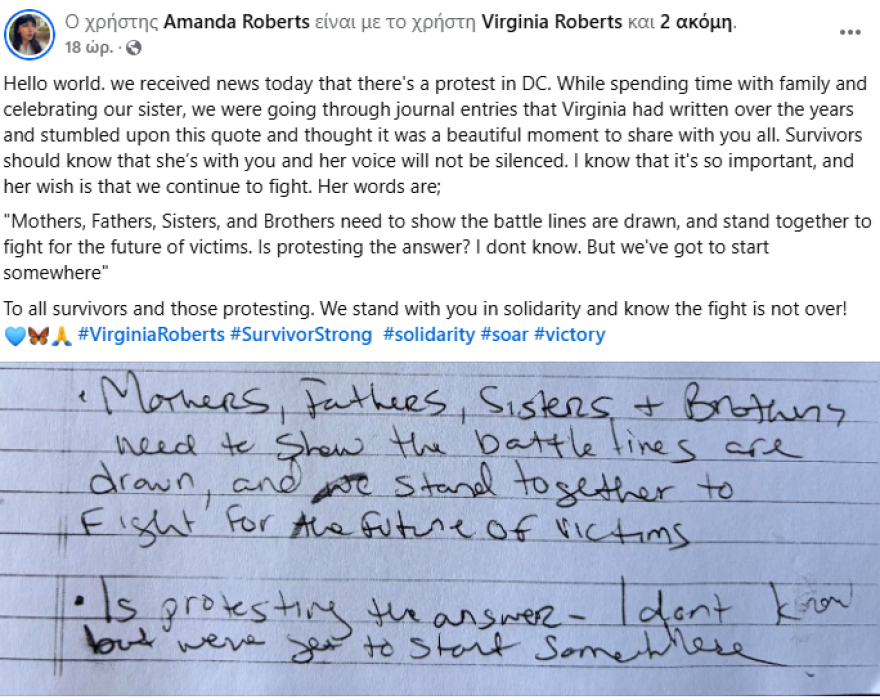 Ο χρήστης Amanda Roberts είναι με το χρήστη Virginia Roberts και 2 ακόμη.
18 ώρ. ·
Hello world. we received news today that there's a protest in DC. While spending time with family and
celebrating our sister, we were going through journal entries that Virginia had written over the years
and stumbled upon this quote and thought it was a beautiful moment to share with you all. Survivors
should know that she's with you and her voice will not be silenced. I know that it's so important, and
her wish is that we continue to fight. Her words are;
"Mothers, Fathers, Sisters, and Brothers need to show the battle lines are drawn, and stand together to
fight for the future of victims. Is protesting the answer? I dont know. But we've got to start
somewhere"
To all survivors and those protesting. We stand with you in solidarity and know the fight is not over!
💙🦋🙏 #VirginiaRoberts #SurvivorStrong #solidarity #soar #victory
· Mothers, Fathers, Sisters + Brothers
need to show the battle lines are
drawn, and stand together to
Fight for the future of victims
· Is protesting the answer - I dont know
but were got to start Somewhere